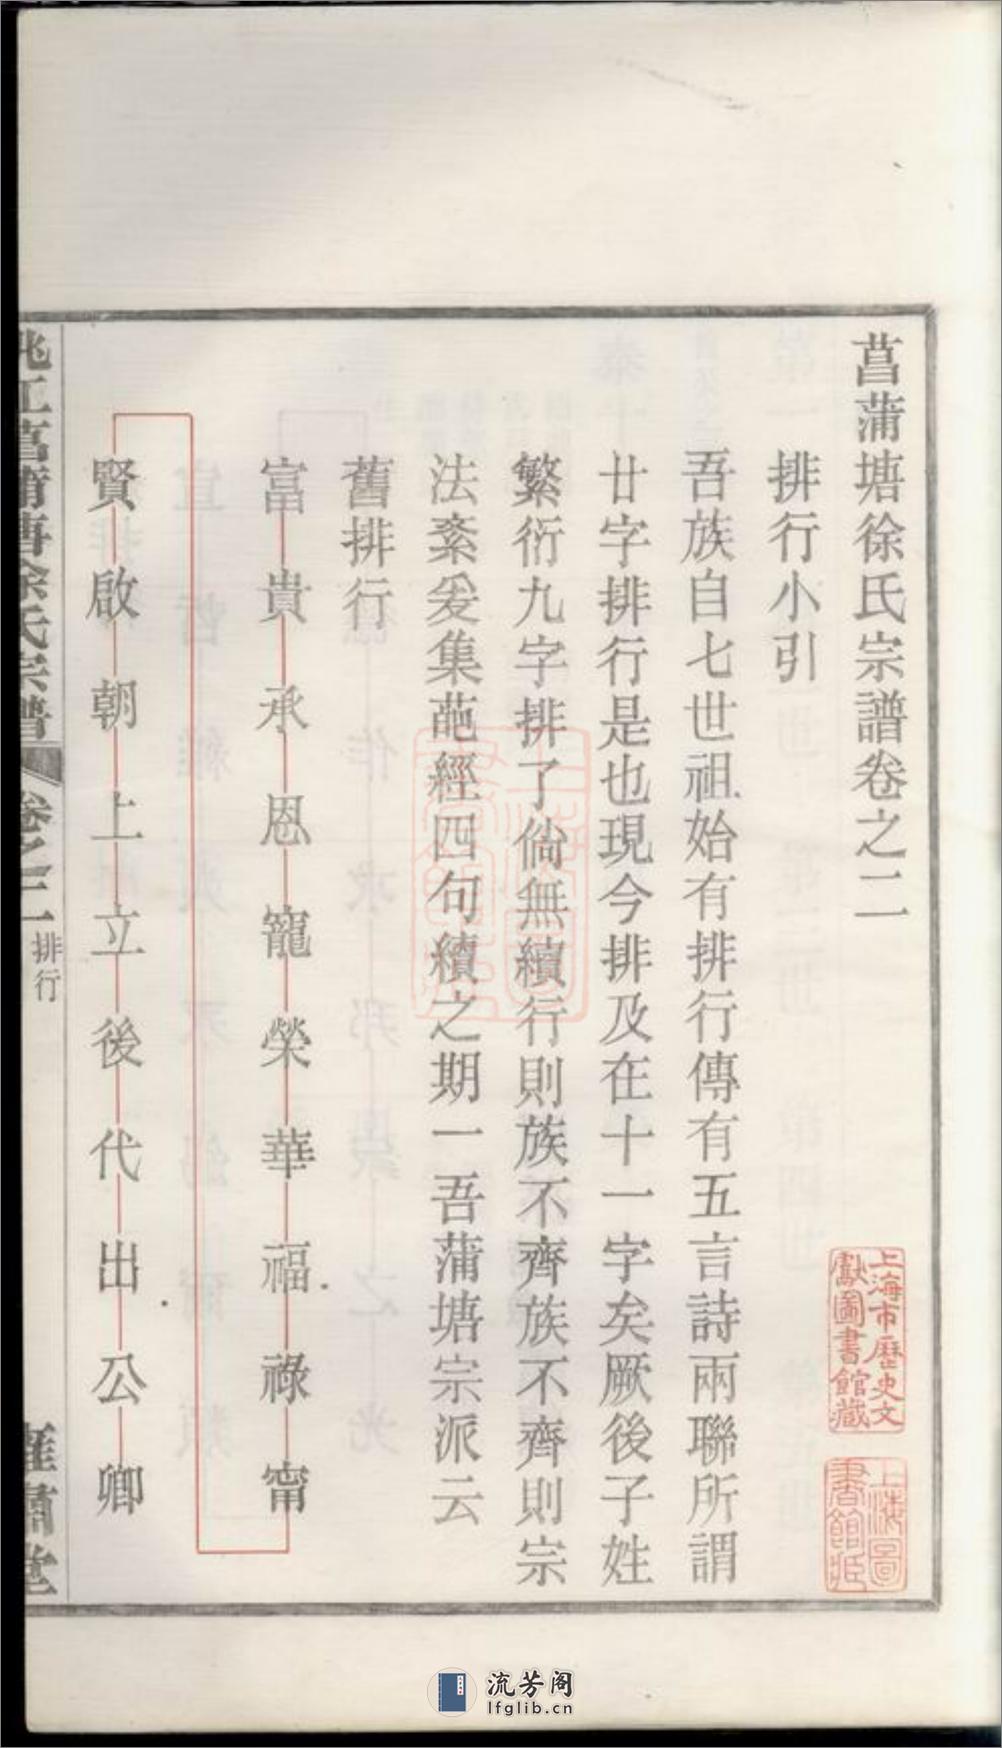 菖蒲塘徐氏宗譜卷之二
排行小引
吾族自七世祖始有排行傳有五言詩兩聯所謂
廿字排行是也現今排及在十一字矣厥後子姓
繁衍九字排了倘無續行則族不齊族不齊則宗
法紊爰集葩經四句續之期一吾蒲塘宗派云
舊排行
富貴承恩寵榮華福祿甯
賢啟朝上立後代出公卿
姚江菖蒲塘徐氏宗譜
卷之二
排行
堂
上海市歷史文
獻圖書館藏
上海圖
書館藏
流芳阁
lfglib.cn